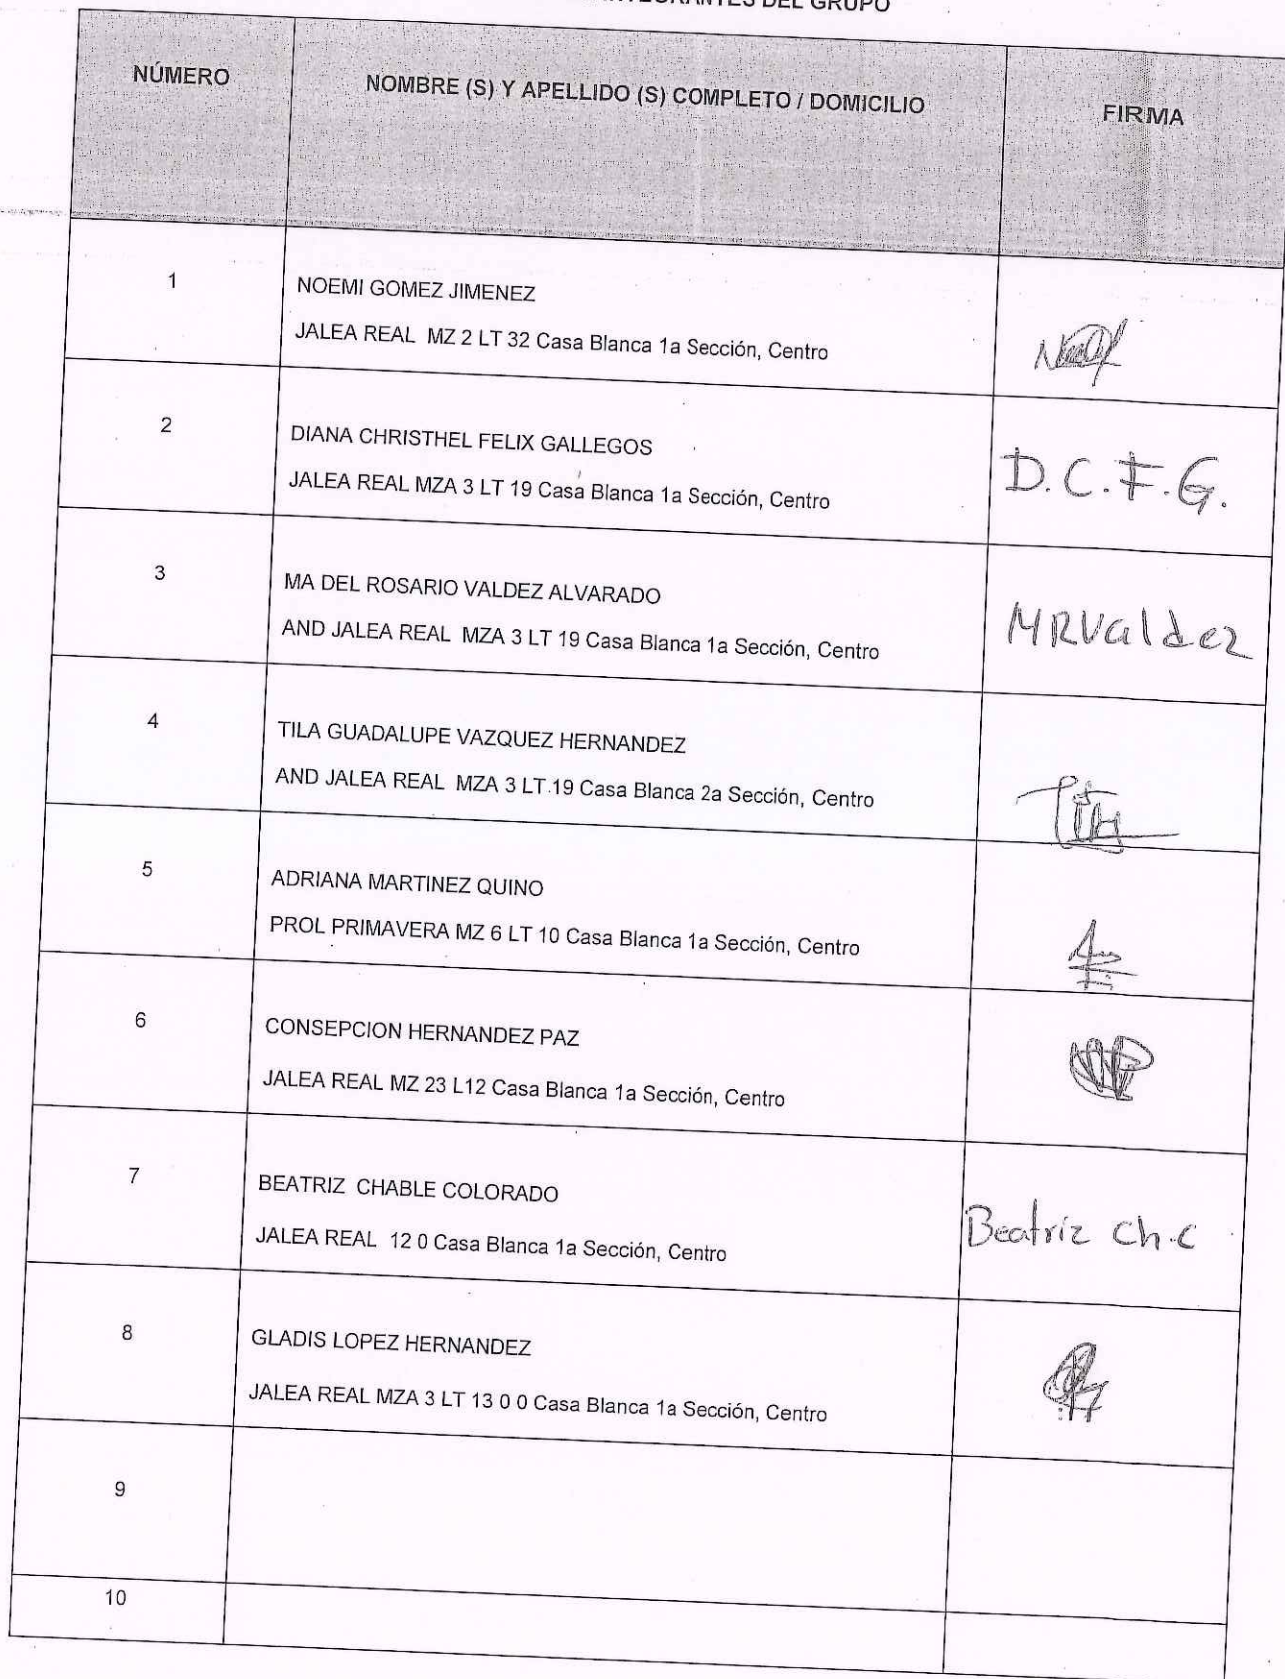 DEL GRUPO
NÚMERO
NOMBRE (S) Y APELLIDO (S) COMPLETO / DOMICILIO
FIRMA
1
NOEMI GOMEZ JIMENEZ
JALEA REAL MZ 2 LT 32 Casa Blanca 1a Sección, Centro
2
DIANA CHRISTHEL FELIX GALLEGOS
JALEA REAL MZA 3 LT 19 Casa Blanca 1a Sección, Centro
D.C.F.G.
3
MA DEL ROSARIO VALDEZ ALVARADO
AND JALEA REAL MZA 3 LT 19 Casa Blanca 1a Sección, Centro
MRValdez
4
TILA GUADALUPE VAZQUEZ HERNANDEZ
AND JALEA REAL MZA 3 LT 19 Casa Blanca 2a Sección, Centro
5
ADRIANA MARTINEZ QUINO
PROL PRIMAVERA MZ 6 LT 10 Casa Blanca 1a Sección, Centro
6
CONSEPCION HERNANDEZ PAZ
JALEA REAL MZ 23 L12 Casa Blanca 1a Sección, Centro
7
BEATRIZ CHABLE COLORADO
JALEA REAL 12 0 Casa Blanca 1a Sección, Centro
Beatriz Ch.C
8
GLADIS LOPEZ HERNANDEZ
JALEA REAL MZA 3 LT 13 0 0 Casa Blanca 1a Sección, Centro
9
10